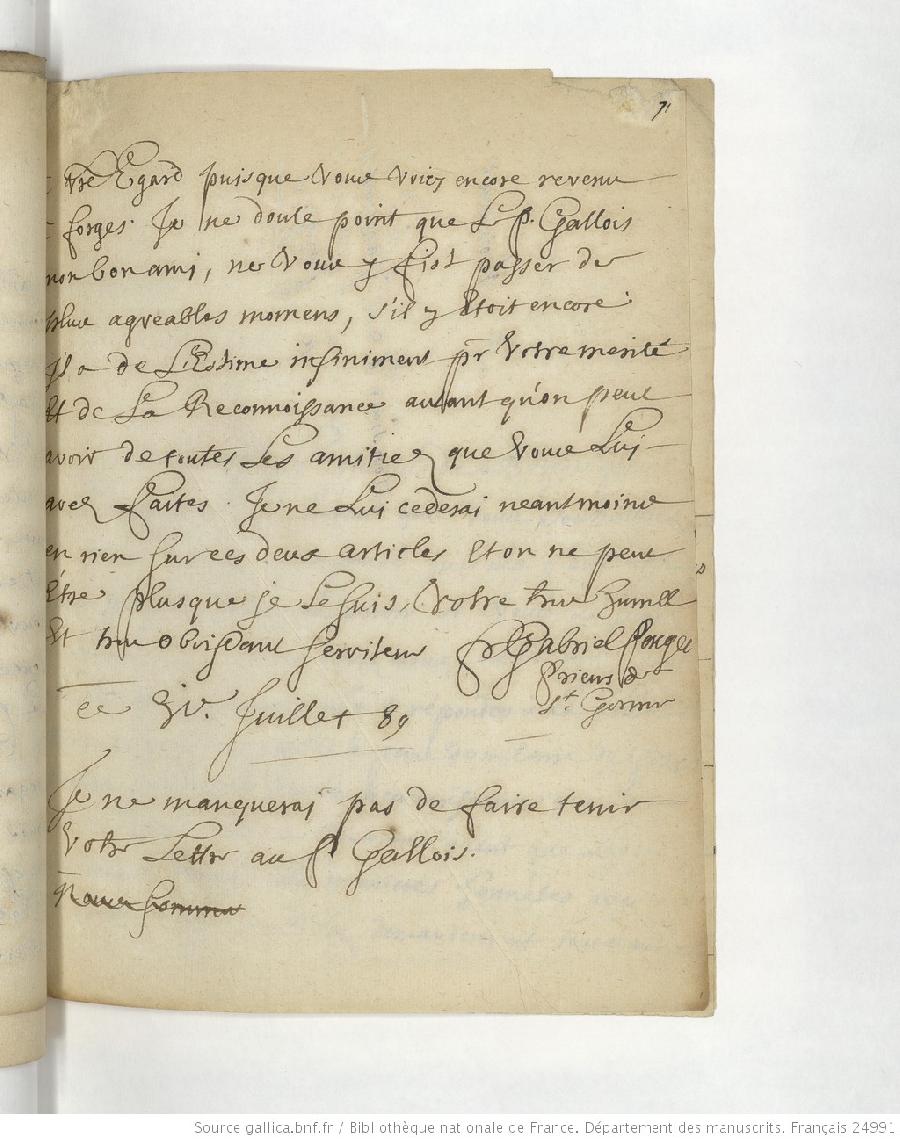 71
vre Egard puisque Vous Voiez encore revenu
forges. Je ne doute point que Le p. Gallois
mon bon ami, ne Vous y fist passer de
plus agreables momens, s'il y Etoit encore.
Il a de L'Estime infiniment pr Votre merite
Et de La Reconnoissance autant qu'on peut
avoir de toutes Les amitiez que Vous Lui
avez faites. Je ne Lui cederai neantmoins
en rien sur ces deux articles Et on ne peut
Etre plus que je Le suis, Votre tres humble
Et tres obeissant serviteur fr Gabriel
Prieur de
St
ce Juillet 89
Je ne manquerai pas de faire tenir
Votre Lettre au p. Gallois.
Source gallica.bnf.fr / Bibliothèque nationale de France. Département des manuscrits. Français 24991